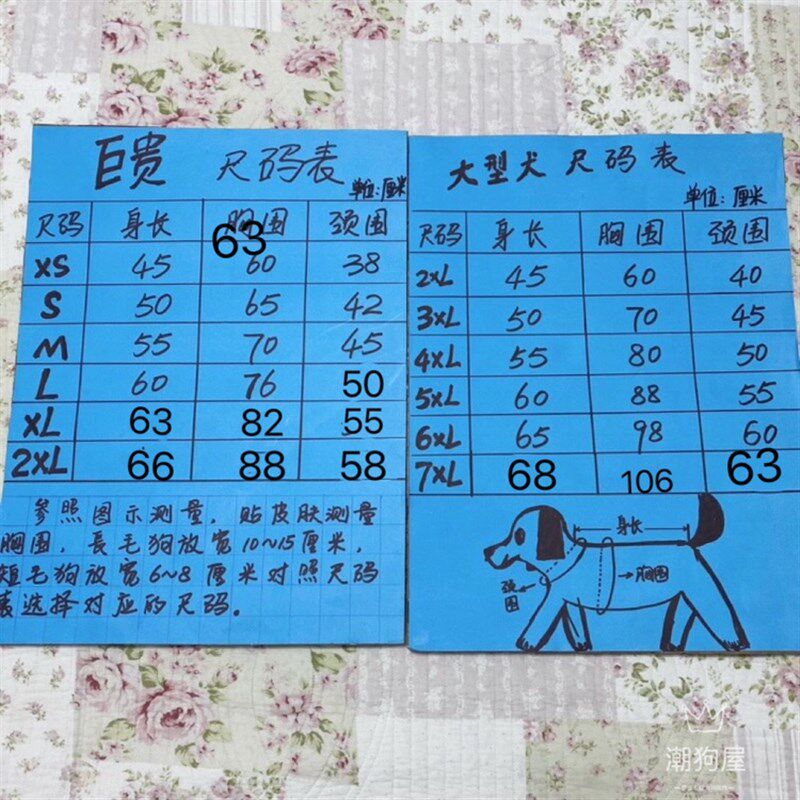 巨贵 尺码表
单位:厘米
尺码 身长 胸围 颈围
63
XS 45 60 38
S 50 65 42
M 55 70 45
L 60 76 50
XL 63 82 55
2XL 66 88 58
参照图示测量,贴皮肤测量
胸围,長毛狗放宽10~15厘米,
短毛狗放宽6~8厘米对照尺码
表选择对应的尺码。
大型犬尺码表
单位:厘米
尺码 身长 胸围 颈围
2XL 45 60 40
3XL 50 70 45
4XL 55 80 50
5XL 60 88 55
6XL 65 98 60
7XL 68 106 63
身长
颈围
胸围
潮狗屋